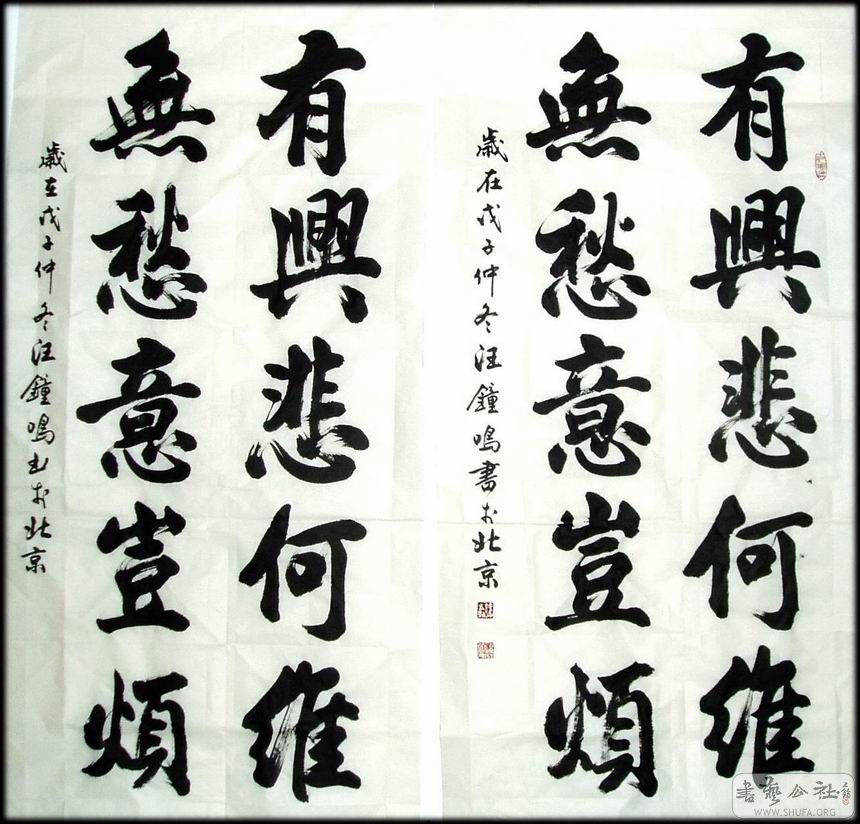 有興悲何維
無愁意豈煩
歲在戊子仲冬汪鐘鳴書於北京
有興悲何維
無愁意豈煩
歲在戊子仲冬汪鐘鳴書於北京
書藝公社
WWW.SHUFA.ORG